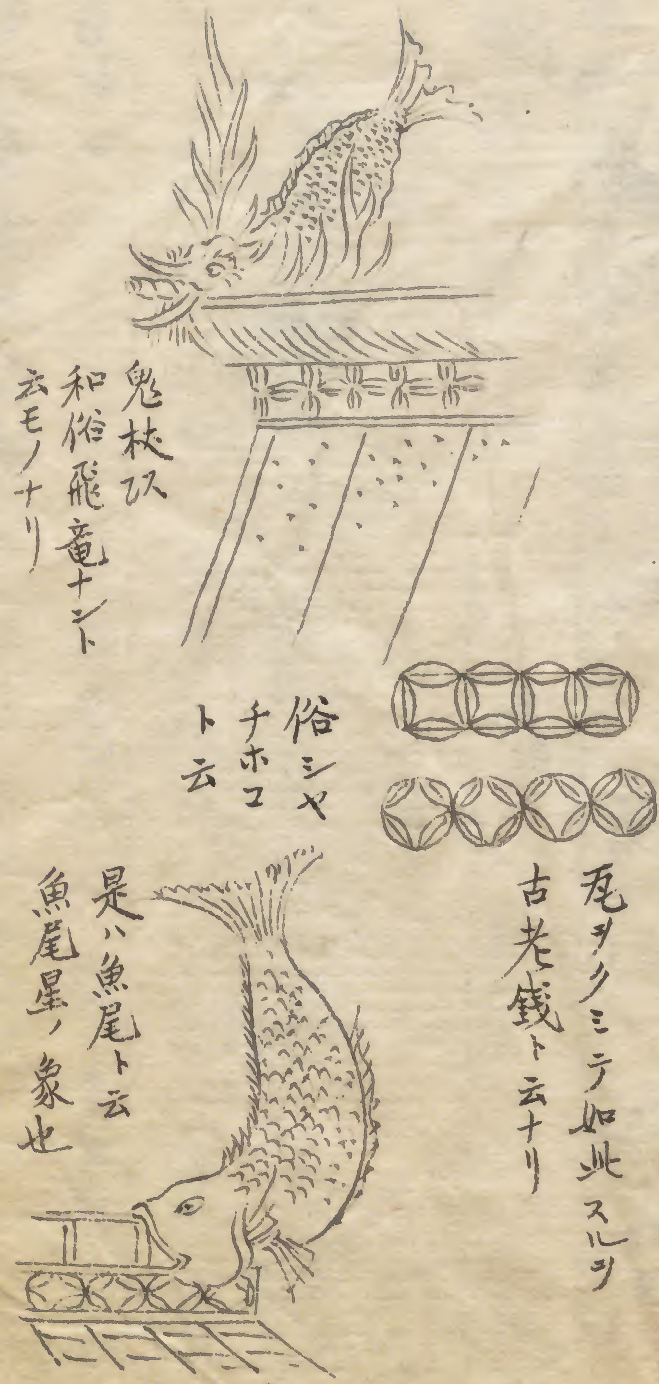 鬼杕㔫
和俗飛竜ナント
云モノナリ
俗シヤ
チホコ
ト云
瓦ヲクミテ如此スルヲ
古老錢ト云ナリ
是ハ魚尾ト云
魚尾星ノ象也